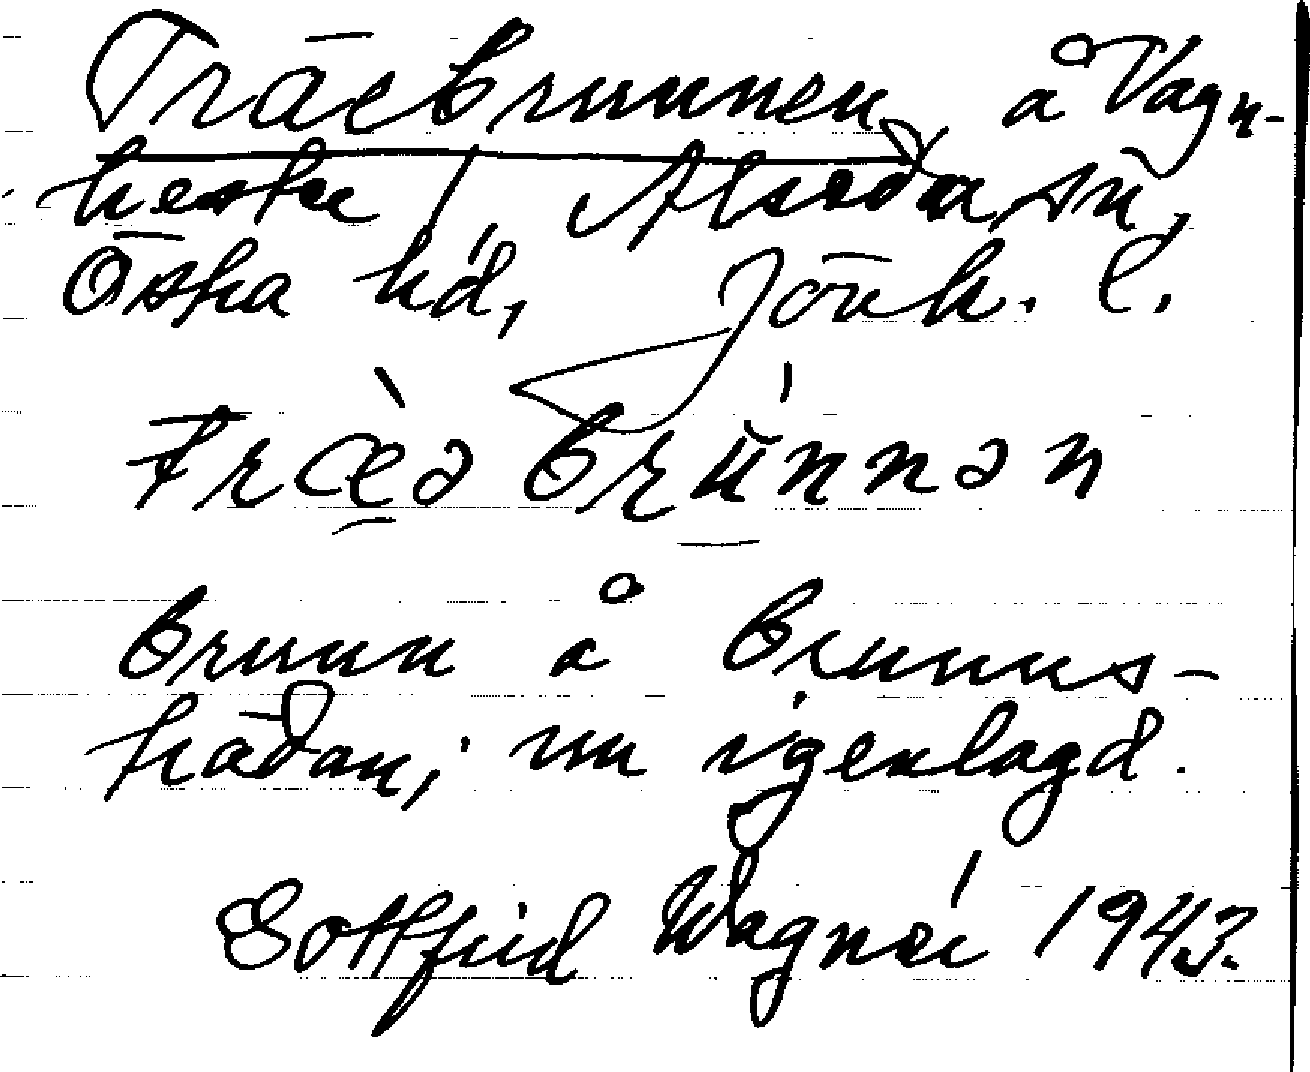 Träebrunnen, å Vagn-
heste, Alseda sn,
Östra hd, Jönk. l.
træ̀ǝbrúnnǝn
Brunn å Brunns-
trädan; nu igenlagd.
Gottfrid Wagnér 1943.